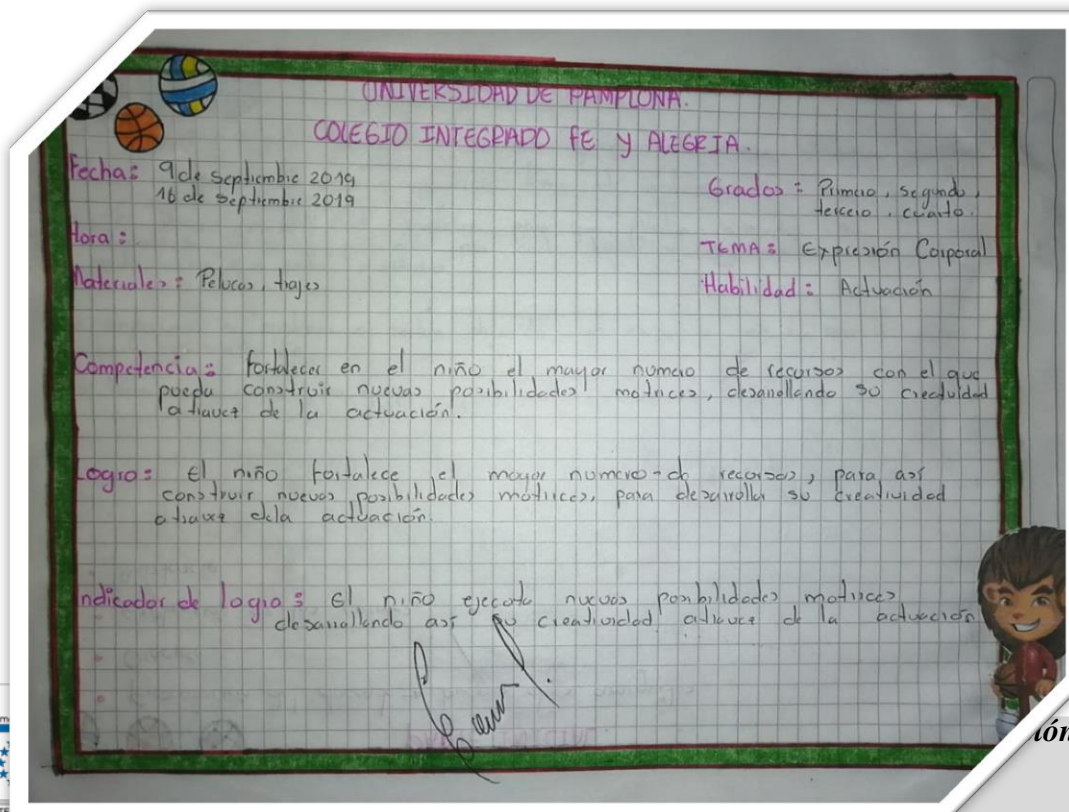 UNIVERSIDAD DE PAMPLONA.
COLEGIO INTEGRADO FE Y ALEGRIA.
Fecha: 9 de septiembre 2019
16 de septiembre 2019
Grados: Primero, segundo,
tercero, cuarto.
Hora:
TEMA: Expresión Corporal
Materiales: Pelucas, trajes
Habilidad: Actuación
Competencia: Fortalecer en el niño el mayor numero de recursos con el que
pueda construir nuevas posibilidades motrices, desarrollando su creatividad
atravez de la actuación.
Logro: El niño fortalece el mayor numero de recursos, para así
construir nuevas posibilidades motrices, para desarrollar su creatividad
atravez dela actuación.
Indicador de logro: El niño ejecuta nuevas posibilidades motrices
desarrollando así su creatividad atravez de la actuación
ión